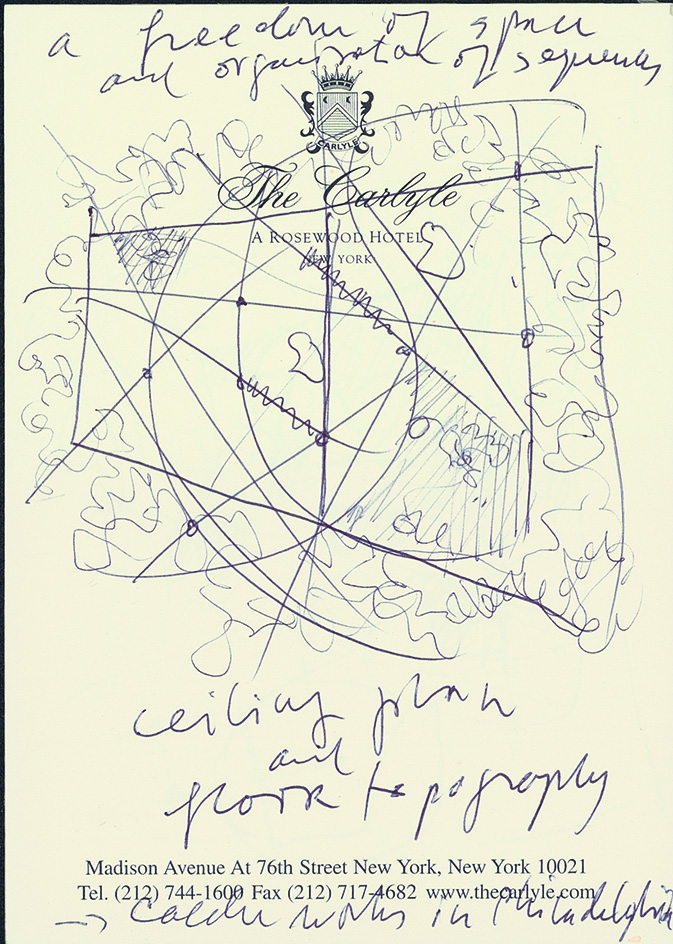 a freedom of space
and organisation of sequences
CARLYLE
The Carlyle
A ROSEWOOD HOTEL
NEW YORK
ceiling plan
and
floor topography
Madison Avenue At 76th Street New York, New York 10021
Tel. (212) 744-1600 Fax (212) 717-4682 www.thecarlyle.com
→ calder works in Philadelphia